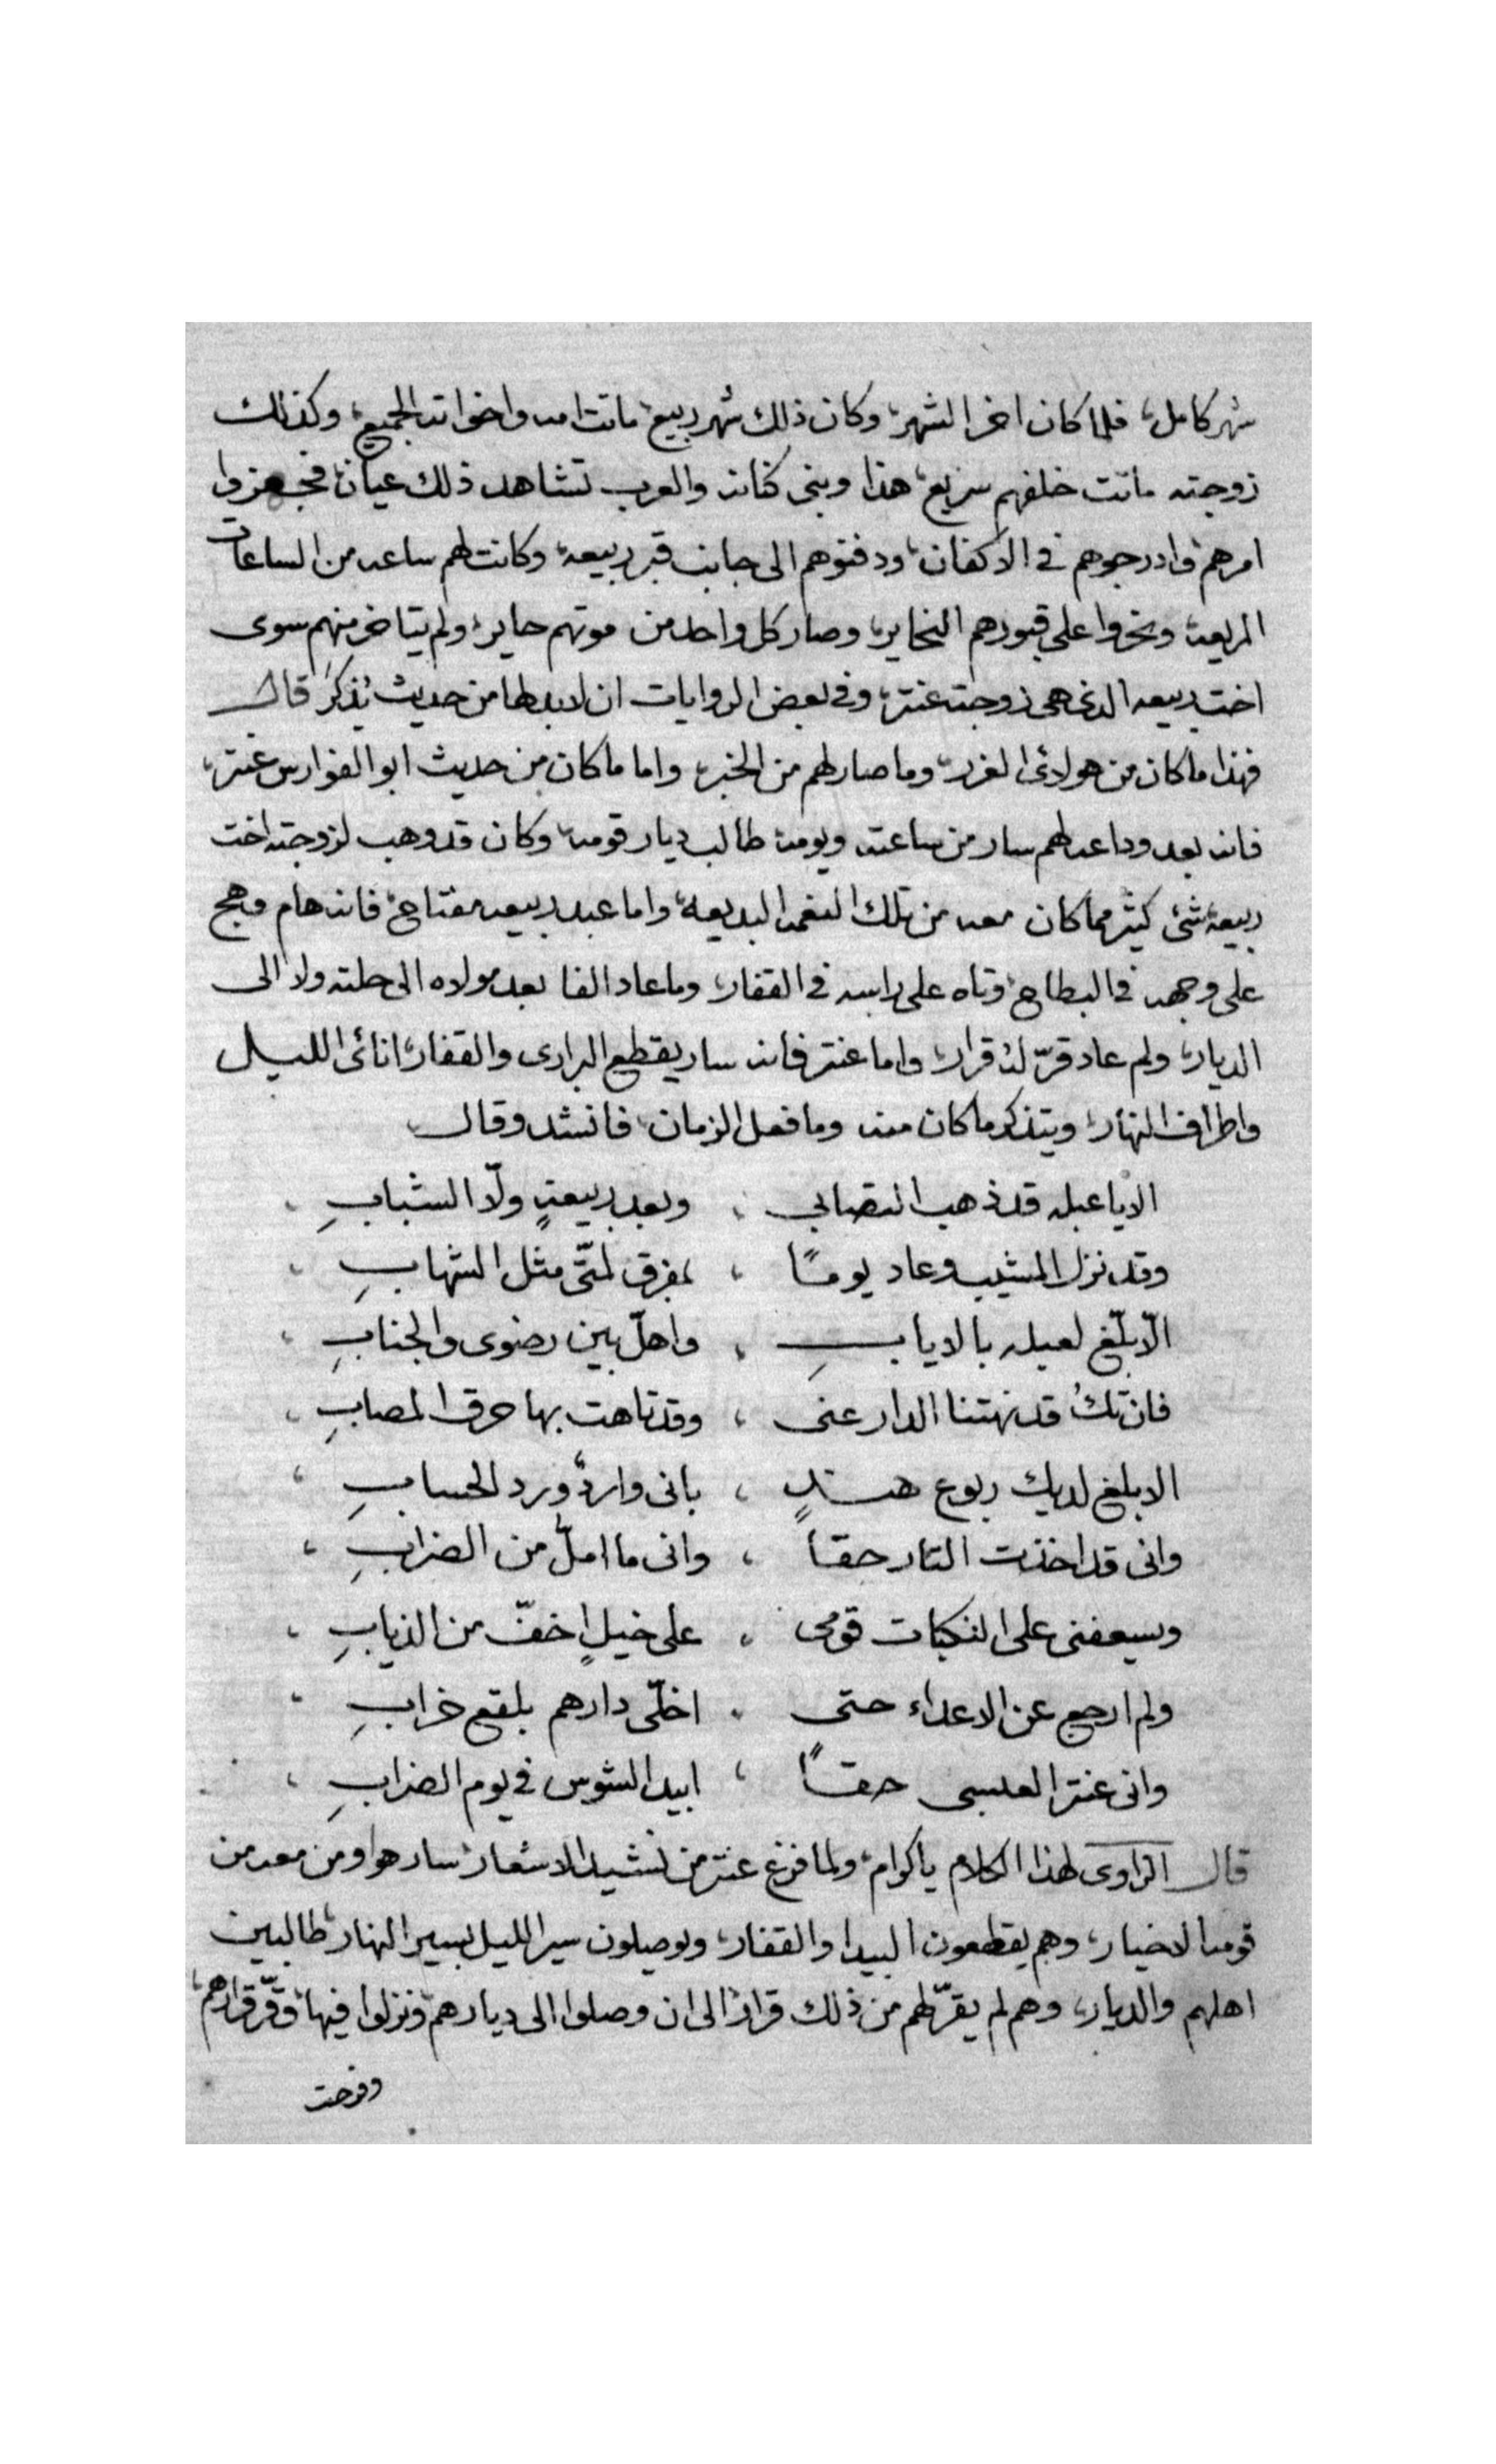 شهر كامل، فلما كان اخر الشهر، وكان ذلك شهر ربيع، ماتت امه واخواته الجميع، وكذلك
زوجته ماتت خلفهم سريع، هذا وبنى كنانه والعرب تشاهد ذلك عيان، فجهزوا
امرهم، وادرجوهم فى الاكفان، ودفنوهم الى جانب قبر ربيعه، وكانت لهم ساعه من الساعات
المريعه، ونحروا على قبورهم النحاير، وصار كل واحد من موتهم حاير، ولم يتاخر منهم سوى
اخت ربيعه الذى هى زوجته عنتر، وفى بعض الروايات ان لابد لها من حديث يذكر، قال
فهذا ما كان من هولائى الغرر، وما صار لهم من الخبر، واما ما كان من حديث ابو الفوارس عنتر،
فانه بعد وداعه لهم سار من ساعته ويومه، طالب ديار قومه، وكان قد وهب لزوجته اخت
ربيعه شئ كثير مما كان معه من تلك النعمه البديعه، واما عبد ربيعه مفتاح، فانه هام وهج
على وجهه فى البطاح، وتاه على راسه فى القفار، وما عاد الفا بعد مولاه الى حلته ولا الى
الديار، ولم عاد قرّ له قرار، واما عنتر فانه سار يقطع البرارى والقفار، انائى الليل
واطراف النهار، ويتذكر ما كان منه وما فعل الزمان، فانشد وقال
الا يا عبله قد ذهب التصابى ، وبعد ربيعةٍ ولّا الشبابِ ،
وقد نزل المشيب وعاد يومًا ، بمفرق لمتّى مثل الشهابِ ،
الّا بلّغ لعبله بالايابِ ، واهلّ بين رضوى والجنابِ ،
فان تكُ قد نهتنا الدار عنى ، وقد تاهت بها حرق المصابِ ،
الا بلغ لديك ربوع هندٍ ، بانى واردٌ ورد الحسابِ ،
وانى قد اخذت الثار حقا ، وانى ما املّ من الضرابِ ،
ويسعفنى على النكبات قومى ، على خيلٍ اخفّ من الذيابِ ،
ولم ارجع عن الاعداء حتى ، اخلّى دارهم بلقع خرابِ ،
وانى عنتر العبسى حقاً ، ابيد الشوس فى يوم الضرابِ ،
قال الراوى لهذا الكلام يا كرام، ولما فرغ عنتر من نشيد الاشعار، سار هو ومن معه من
قومه الاخيار، وهم يقطعون البيدا والقفار، ويوصلون سير الليل بسير النهار، طالبين
اهلهم والديار، وهم لم يقرّ لهم من ذلك قرار، الى ان وصلوا الى ديارهم، ونزلوا فيها، وقرّ قرارهم،
وفرحت